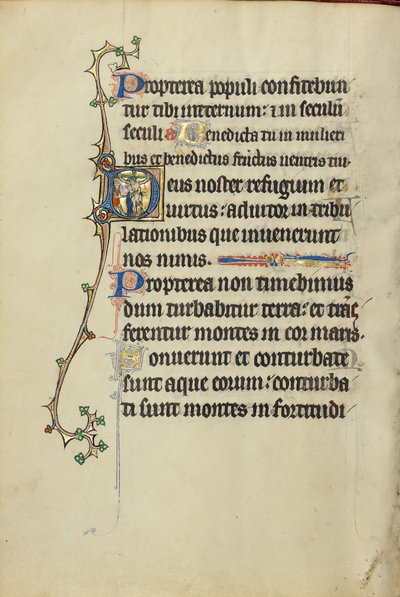 Propterea populi confitebun
tur tibi in eternum: & in seculū
seculi a Benedicta tu in mulieri
bus et benedictus fructus uentris tui.
Deus noster refugium et
uirtus: adiutor in tribu
lationibus que inuenerunt
nos nimis.
Propterea non timebimus
dum turbabitur terra: et trāſ
ferentur montes in cor maris.
Sonuerunt et conturbate
sunt aque eorum: conturba
ti sunt montes in fortitudi